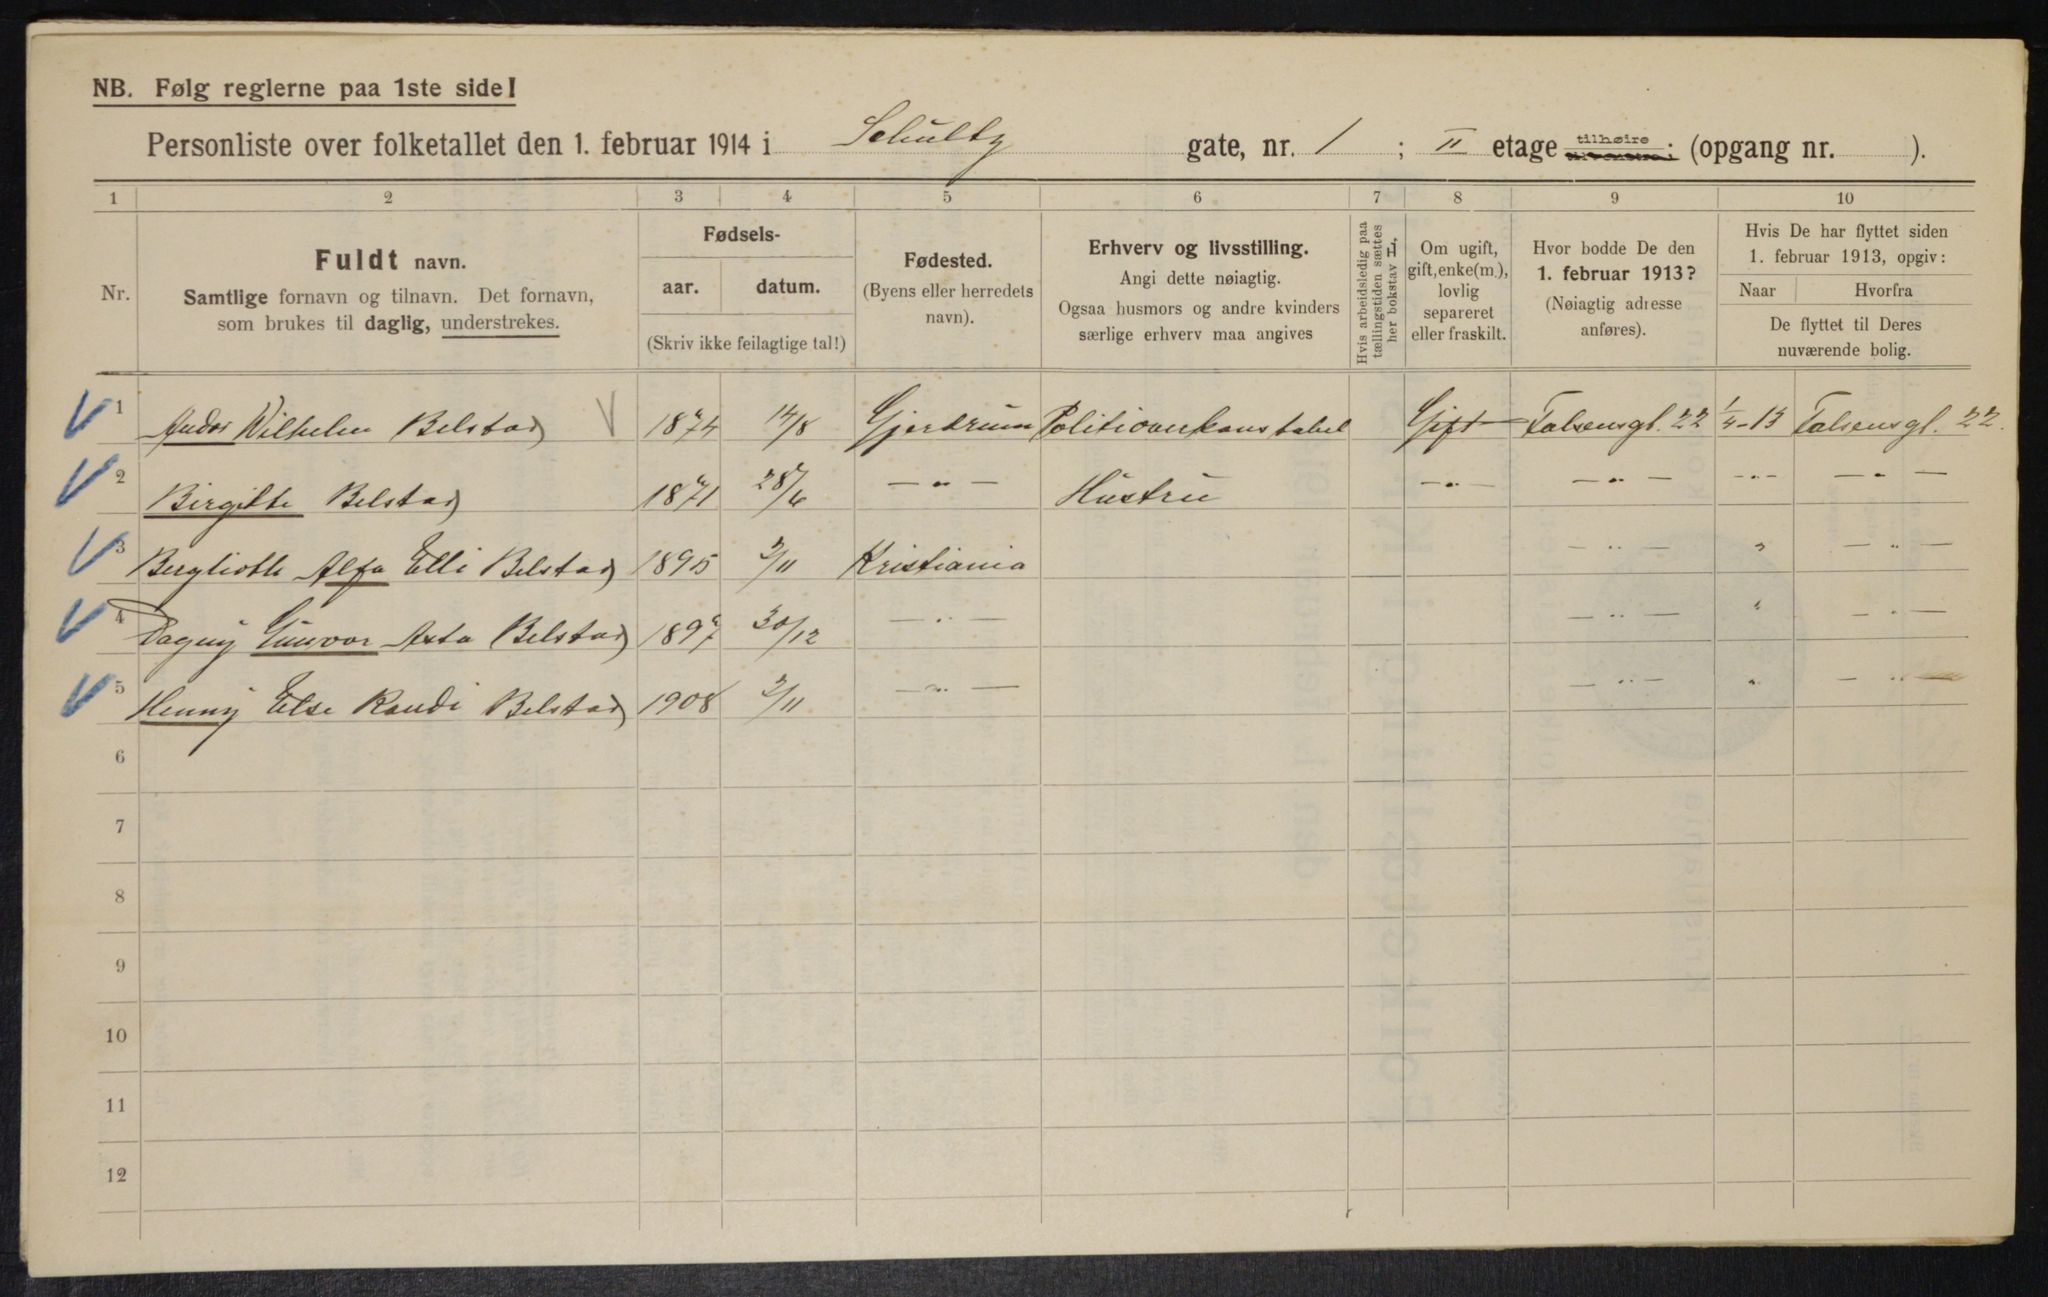 NB. Følg reglerne paa 1ste side!
Personliste over folketallet den 1. februar 1914 i Schultz gate, nr. 1 ; II etage tilhøire (opgang nr. ).
1 2 3 4 5 6 7 8 9 10
Nr.
Fuldt navn.
Samtlige fornavn og tilnavn. Det fornavn,
som brukes til daglig, understrekes.
Fødsels-
aar. datum.
(Skriv ikke feilagtige tal!)
Fødested.
(Byens eller herredets
navn).
Erhverv og livsstilling.
Angi dette nøiagtig.
Ogsaa husmors og andre kvinders
særlige erhverv maa angives
Hvis arbeidsledig paa
tællingstiden sættes
her bokstav L.
Om ugift,
gift, enke(m.),
lovlig
separeret
eller fraskilt.
Hvor bodde De den
1. februar 1913?
(Nøiagtig adresse
anføres).
Hvis De har flyttet siden
1. februar 1913, opgiv:
Naar Hvorfra
De flyttet til Deres
nuværende bolig.
1 Andor Wilhelm Belstad 1874 14/8 Gjerdrum Politioverkonstabel Gift Falsensgt. 22 1/4-13 Falsensgt. 22.
2 Birgitte Belstad 1871 28/6 —"— Hustru —"— —"— -"- —"—
3 Bergliotk Alfa Elli Belstad 1895 2/11 Kristiania —"— " —"—
4 Dagny Gunvor Asta Belstad 1897 30/12 —"— —"— " —"—
5 Henny Else Randi Belstad 1908 2/11 —"— —"— " —"—
6
7
8
9
10
11
12